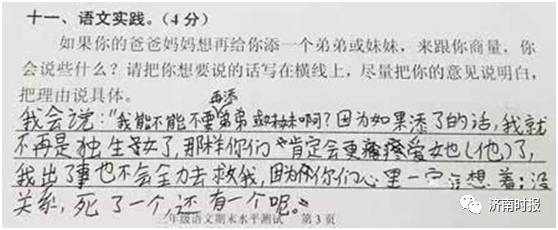 十一、语文实践。(4分)
如果你的爸爸妈妈想再给你添一个弟弟或妹妹，来跟你商量，你
会说些什么？请把你想要说的话写在横线上，尽量把你的意见说明白，
把理由说具体。
再添
我会说："我能不能不要弟弟或妹妹啊？因为如果添了的话，我就
不再是独生女了，那样你们肯定会更疼爱她(他)了，
我出了事也不会全力去救我，因为你们心里一定想着：没
关系，死了一个，还有一个呢。"
三年级语文期末水平测试 第3页
济南时报